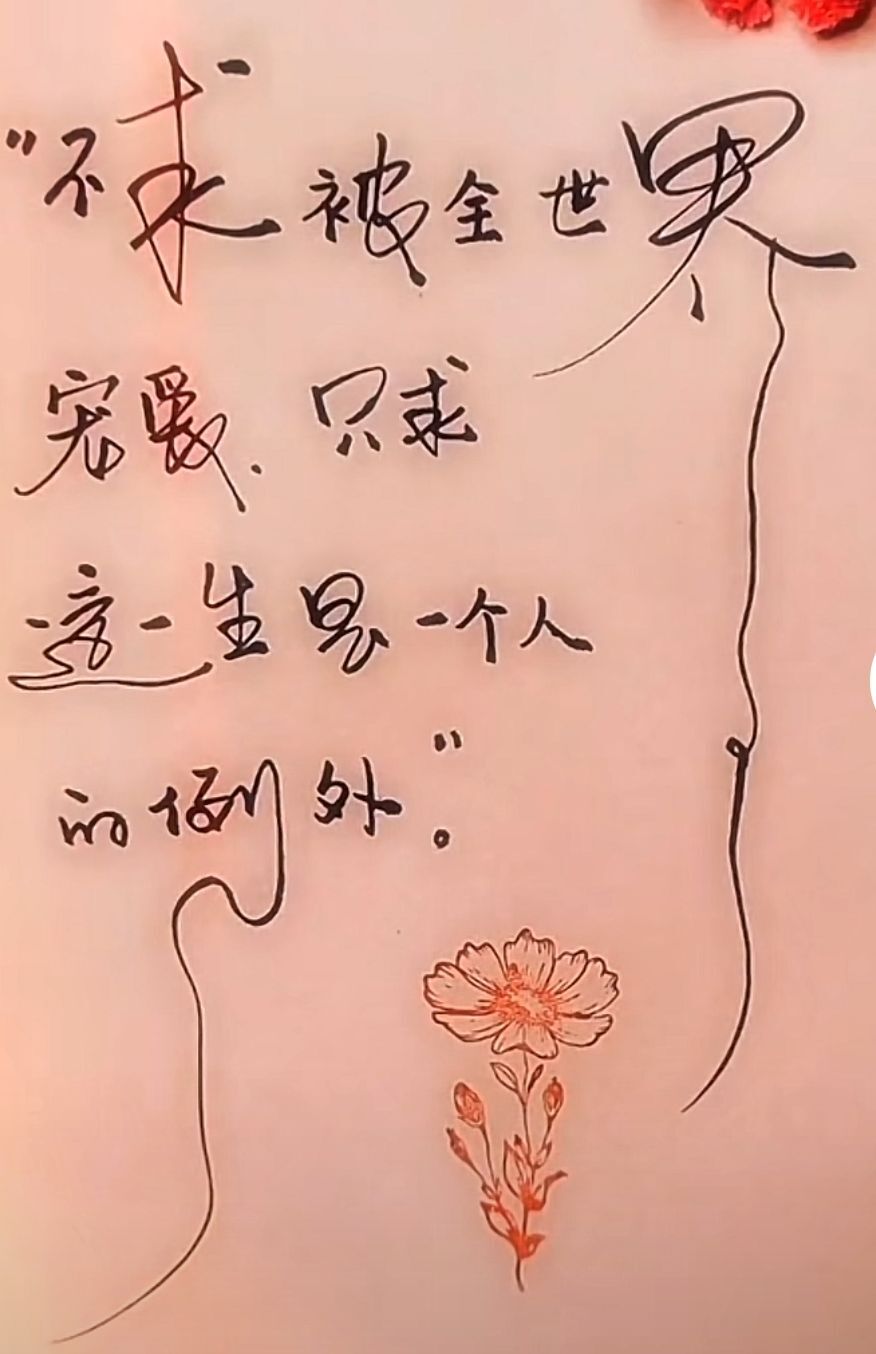 "不求被全世界
宠爱、只求
这一生是一个人
的例外。"